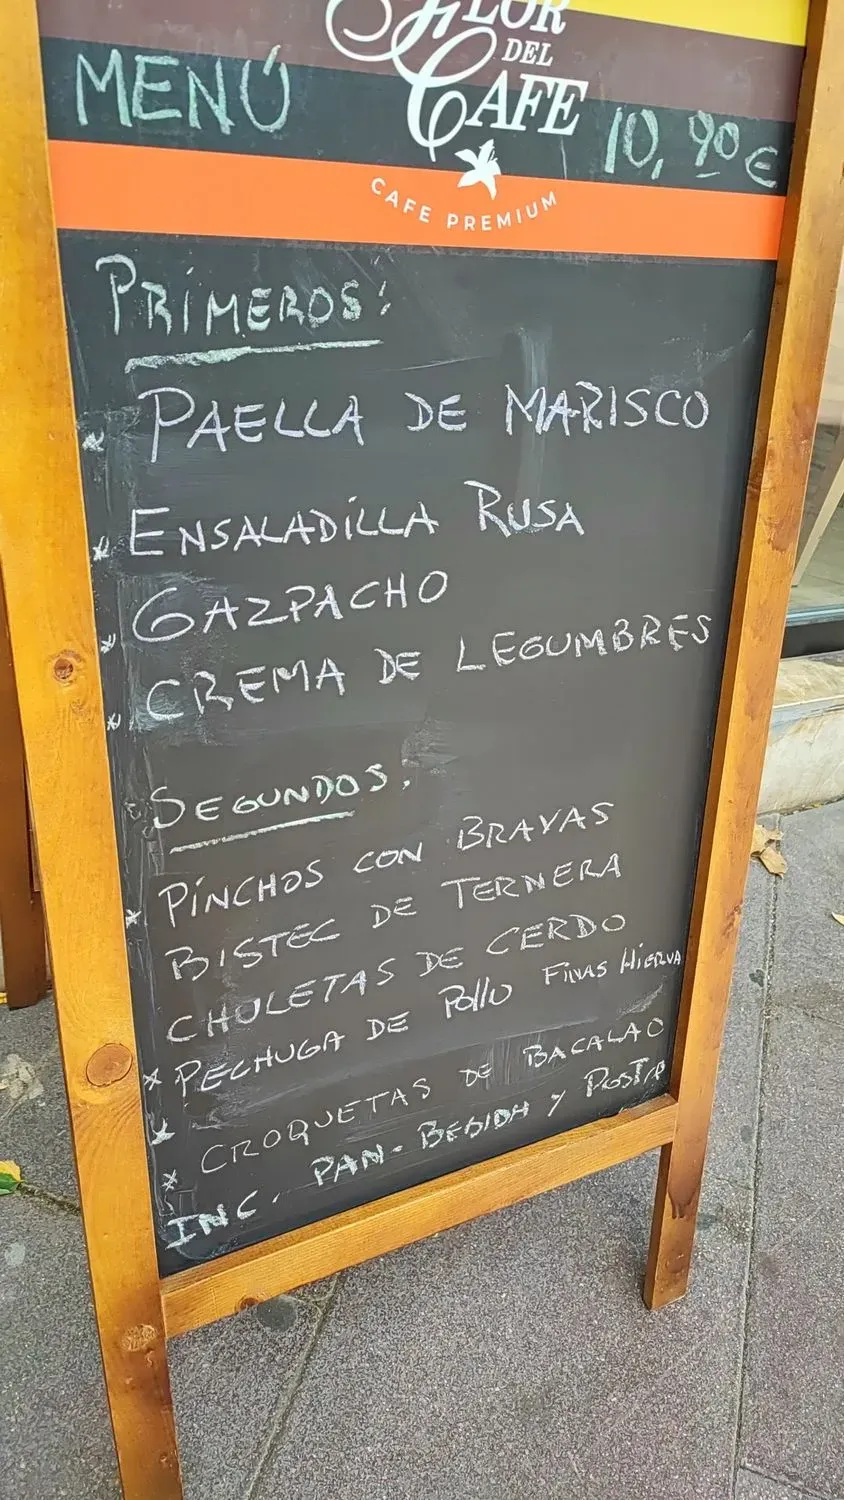 FLOR
DEL
CAFE
MENÚ 10,90€
CAFE PREMIUM
PRIMEROS:
* PAELLA DE MARISCO
* ENSALADILLA RUSA
* GAZPACHO
* CREMA DE LEGUMBRES
SEGUNDOS:
* PINCHOS CON BRAVAS
BISTEC DE TERNERA
CHULETAS DE CERDO
* PECHUGA DE POLLO FINAS HIERVA
* CROQUETAS DE BACALAO
* INC. PAN - BEBIDA Y POSTRE